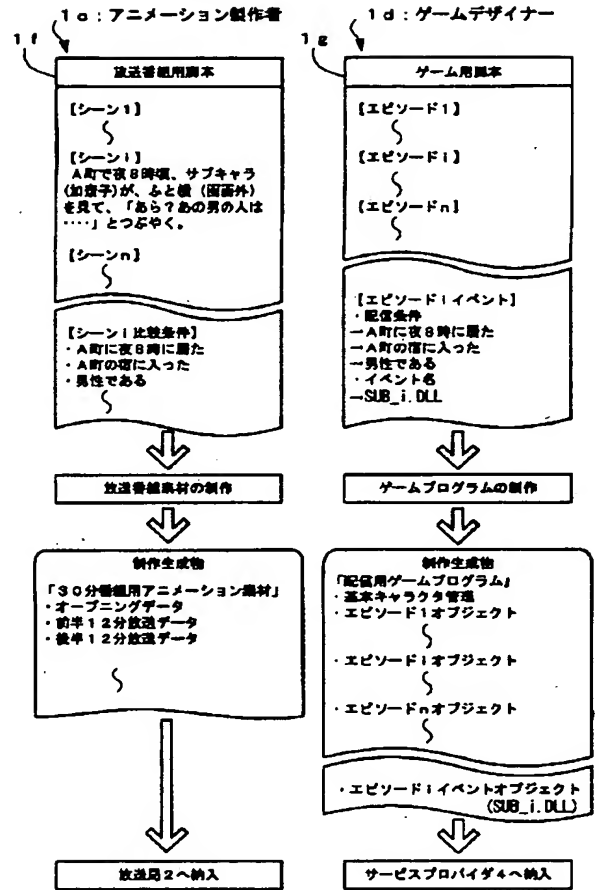 1a:アニメーション製作者
1f
放送番組用脚本
【シーン1】
【シーンi】
A町で夜8時頃、サブキャラ
(加奈子)が、ふと横(画面外)
を見て、「あら?あの男の人は
‥‥」とつぶやく。
【シーンn】
【シーンi比較条件】
・A町に夜8時に居た
・A町の宿に入った
・男性である
放送番組素材の制作
制作生成物
「30分番組用アニメーション素材」
・オープニングデータ
・前半12分放送データ
・後半12分放送データ
放送局2へ納入
1d:ゲームデザイナー
1g
ゲーム用脚本
【エピソード1】
【エピソードi】
【エピソードn】
【エピソードiイベント】
・配信条件
→A町に夜8時に居た
→A町の宿に入った
→男性である
・イベント名
→SUB_i.DLL
ゲームプログラムの制作
制作生成物
「配信用ゲームプログラム」
・基本キャラクタ管理
・エピソード1オブジェクト
・エピソードiオブジェクト
・エピソードnオブジェクト
・エピソードiイベントオブジェクト
(SUB_i.DLL)
サービスプロバイダ4へ納入